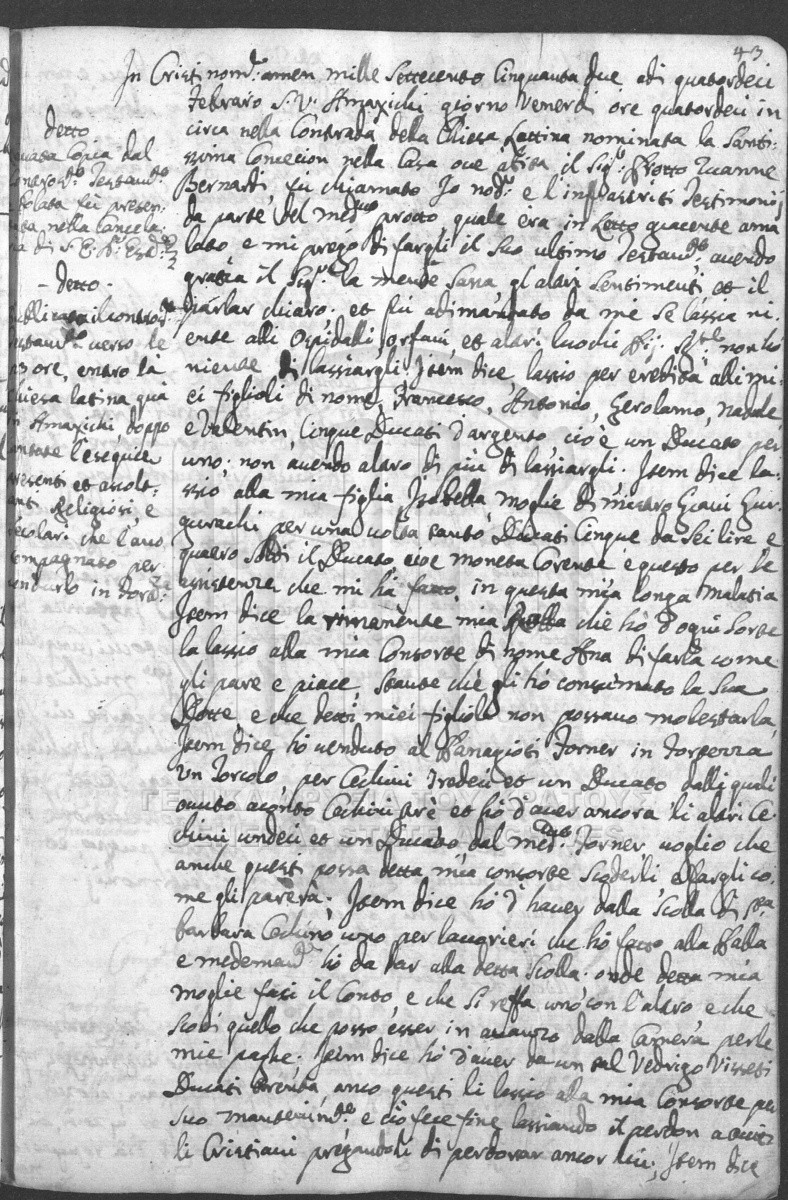 43
In Cristi nom.e amen mille settecento cinquanta due adi quatordeci
Febraro S.V. Amaxichi giorno Venerdi ore quatordeci in
circa nella Contrada della Chiesa Lattina nominata la Santi:
ssima Concecion nella Casa oue abita il Sig.r Protto Zuanne
Bernardi, fu chiamato Io nod.o e l'infrascriti Testimonij
da parte del med.mo protto quale era in Letto giacente ama
lato e mi pregò di fargli il suo ultimo Testam.to auendo
gratia il Sig.re la mente sana gl'altri sentimenti et il
parlar chiaro. et fù adimandato da me se lassia ni:
ente alli Ospidalli orfani, et altri luochi Pij. non hò
niente di lassiargli. Item dice, lassio per eredità alli mi:
ei figlioli di nome Francesco, Antonio, Gerolamo, Nadale
e Valentin, Cinque Ducati d'argento, cioè un Ducato per
uno. non auendo altro di più di lassiargli. Item dice la:
ssio, alla mia figlia Isabella moglie di mistro Giani Gur:
gurachi per una uolta tanto Ducati Cinque da sei lire e
quatro soldi il Ducato, cioe moneta Corente e questo per le
assistenze che mi hà fatto, in questa mia longa malatia
Item dice la rimanente mia che hò d'ogni sorte
la lassio alla mia Consorte di nome Ana di farla come
gli pare e piace, stante che gli hò conssimato la sua
Dotte, e che detti miei figlioli non possano molestarla,
Item dice hò uenduto al Panagioti Forner in Forterra
un Torcolo per Cechini Tredeci et un Ducato dalli quali
auuto aconto Cechini trè et hò d'auer ancora li altri Ce:
chini undeci et un Ducato dal med.mo Forner uoglio che
anche questi possa detta mia consorte scoderli e fargli co:
me gli parerà. Item dice hò d'hauer dalla Scolla di S.ta
barbara Cechino uno per lauorieri che hò fatto alla Palla
e medemam.te hò da dar alla detta Scolla. onde detta mia
moglie faci il Conto, e che si reffa uno con l'altro e che
scodi quello che posso esser in auanzo dalla Camera per le
mie paghe. Item dice hò d'auer da un tal Vedrigo Visseti
Ducati trenta, anco questi li lassio alla mia Consorte per
suo mantenim.to e ciò fece fine lassiando il perdon a tutti
li Cristiani pregandoli di perdonar ancor lui, Item dice
detto
Copia dal
Testam.to
fù presen:
tata nella Cancela:
ria di S.E.
- detto -
Publicato il contro
Testam.to uerso le
ore, entro la
Chiesa latina quà
in Amaxichi doppo
cantate l'esequie
presenti et ascolt:
anti Religiosi, e
secolar. che l'ano
compagnato per